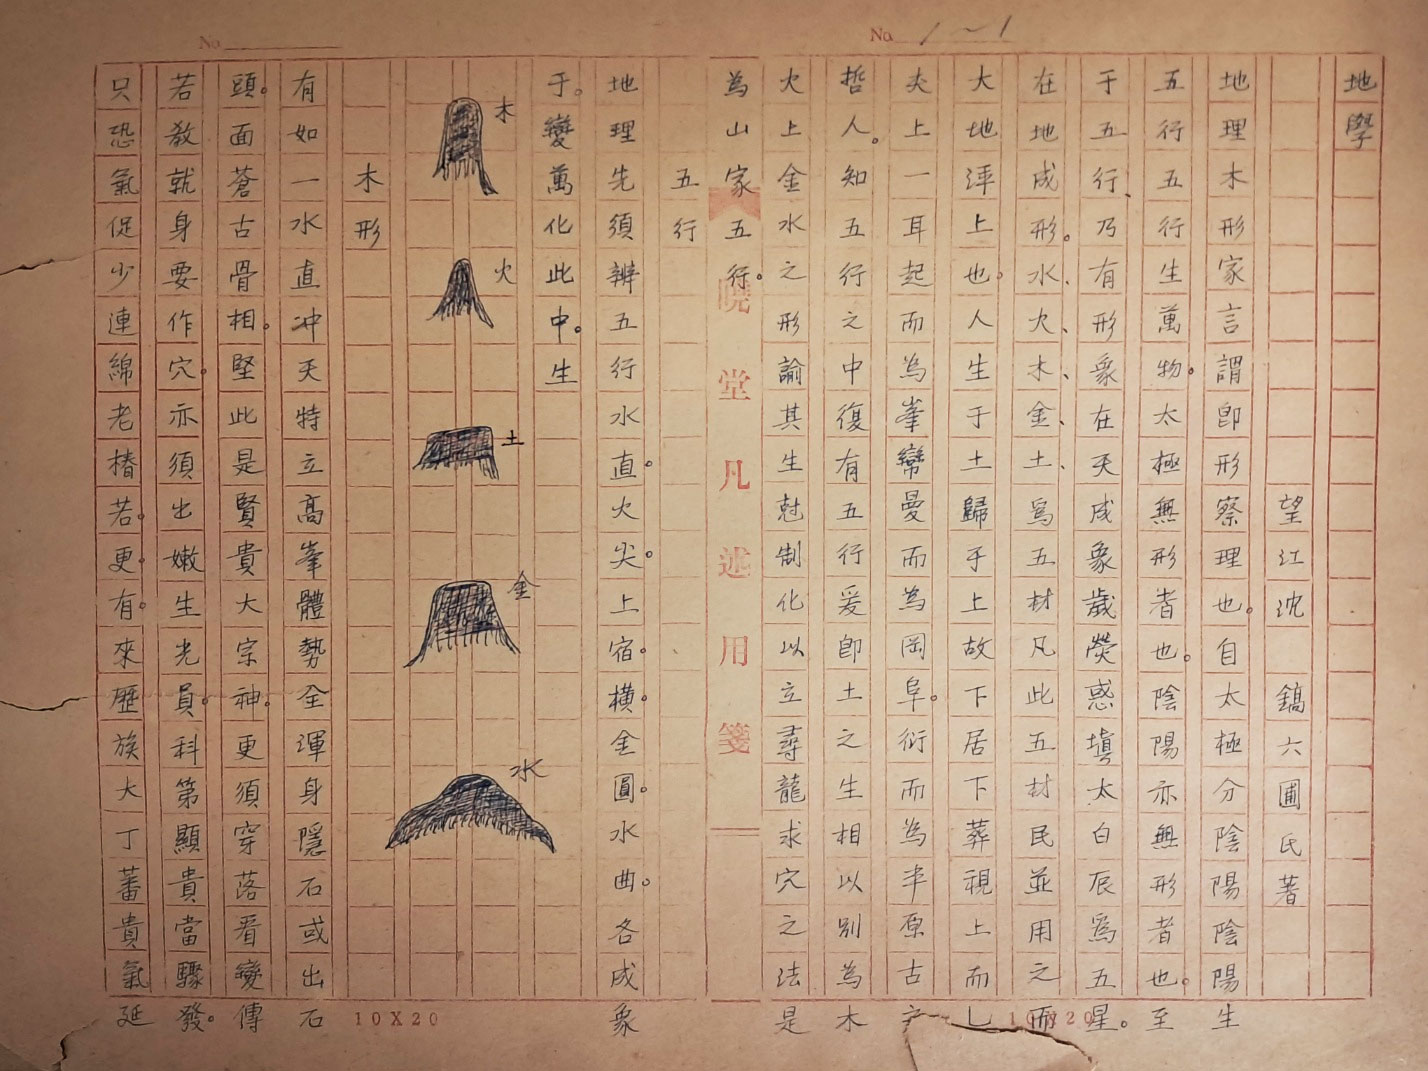 No 1~1
No
地學
望江沈鎬六圃氏著
地理木形家言謂即形察理也。自太極分陰陽陰陽生
五行五行生萬物。太極無形者也。陰陽亦無形者也。至
于五行、乃有形象在天成象歲熒惑塡太白辰爲五星。
在地成形。水、火、木、金、土、爲五材凡此五材民並用之而
大地泙上也。人生于土歸于上故下居下葬視上而已
炎上一耳起而為峯巒曼而為岡阜。衍而為平原古之
哲人。知五行之中復有五行爰即土之生相以別為木
火上金水之形諭其生尅制化以立尋龍求穴之法是
為山家五行。
曉堂凡述用箋
五行
地理先須辨五行水直。火尖。上宿。橫。金圓。水曲。各成象
于。變萬化此中。生
木
火
土
金
水
木形
有如一水直冲天特立高峯體勢全渾身隱石或出石
頭。面蒼古骨相。堅此是賢貴大宗神。更須穿落看變傳
若教就身要作穴。亦須出嫩生光員。科第顯貴當驟發。
只恐氣促少連綿老樁若。更。有。來歷族大丁蕃貴氣延
10X20
10X20